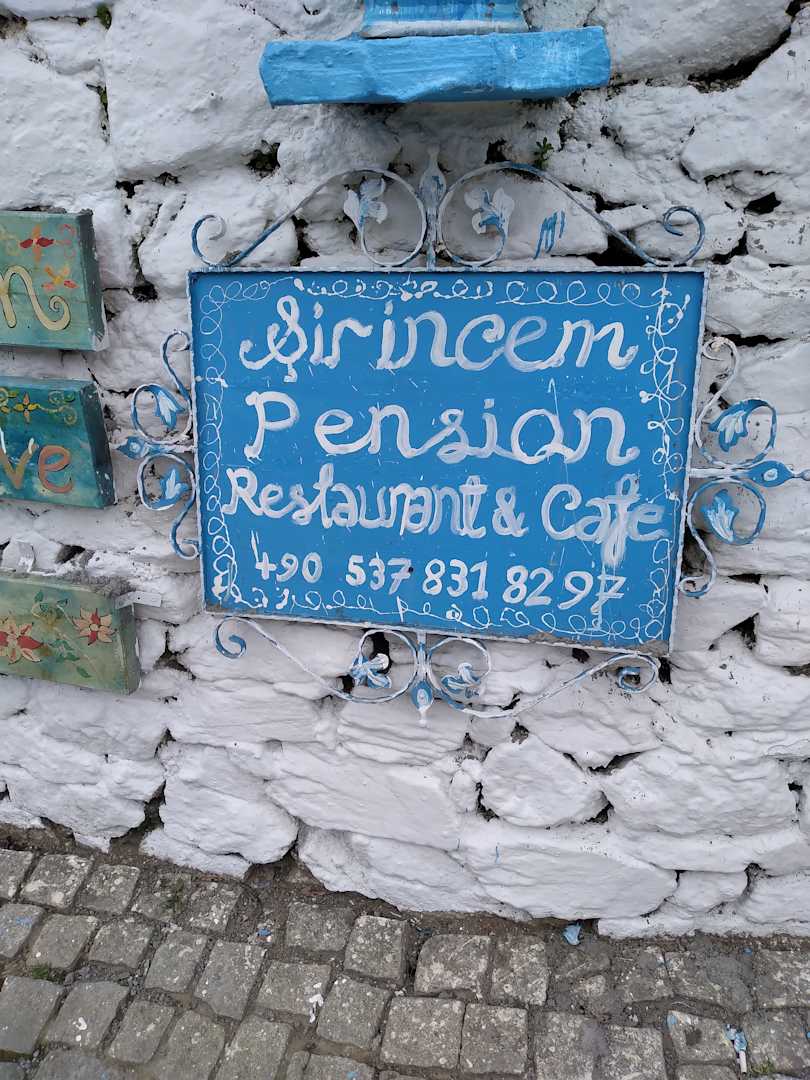 Şirincem
Pension
Restaurant & Cafe
490 537 831 82 97
n
ve